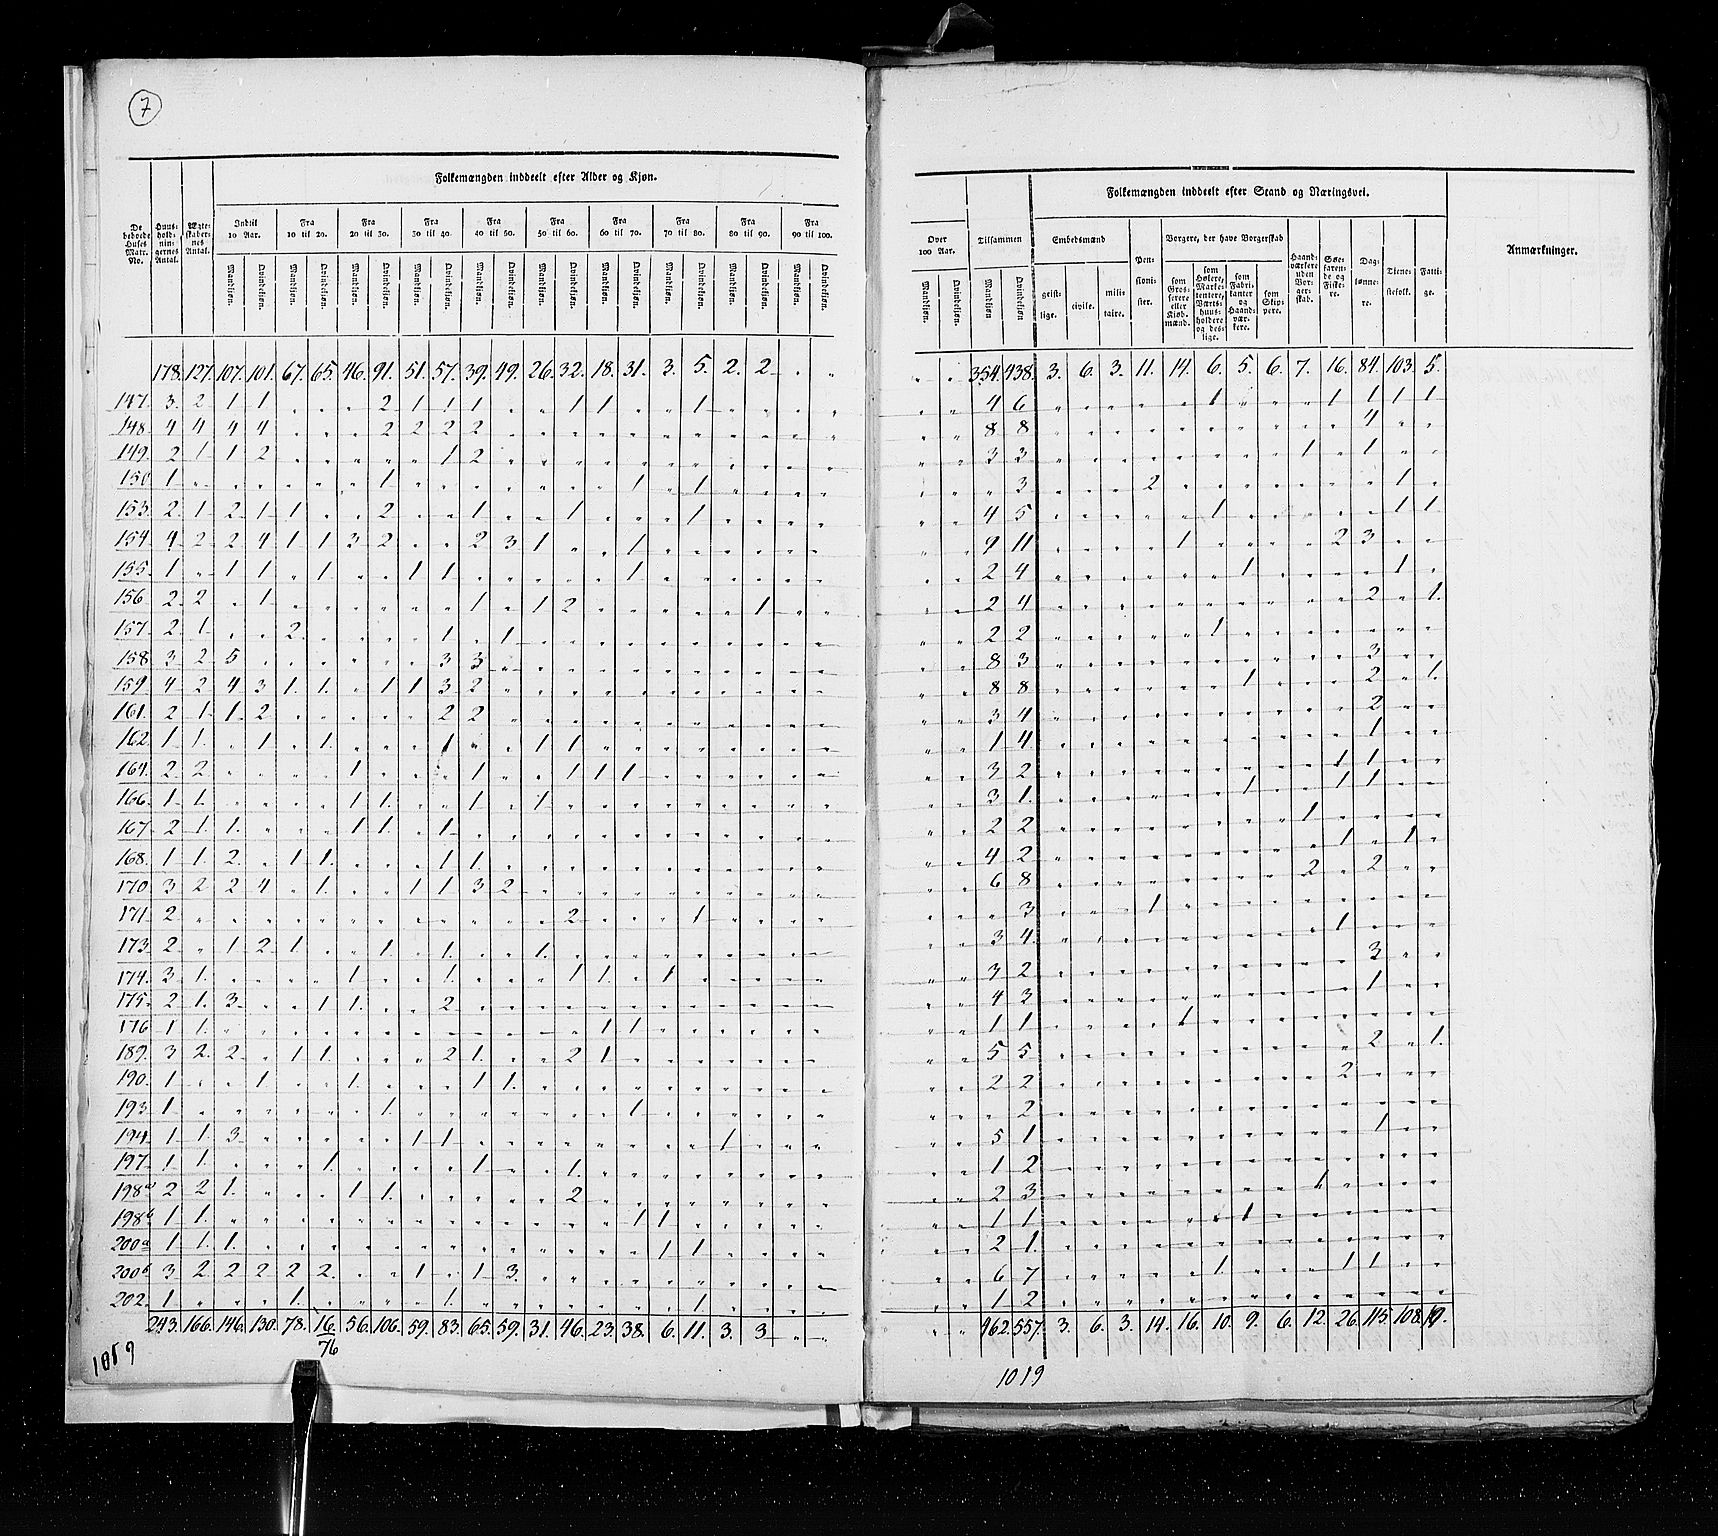 7
Folkemængden inddeelt efter Alder og Kjøn.
De beboede Huses Matr. No.
Huus-hold-nin-gernes Antal.
Ægte-skaber-nes Antal.
Indtil 10 Aar.
Fra 10 til 20.
Fra 20 til 30.
Fra 30 til 40.
Fra 40 til 50.
Fra 50 til 60.
Fra 60 til 70.
Fra 70 til 80.
Fra 80 til 90.
Fra 90 til 100.
Mandkjøn. Qvindekjøn. Mandkjøn. Qvindekjøn. Mandkjøn. Qvindekjøn. Mandkjøn. Qvindekjøn. Mandkjøn. Qvindekjøn. Mandkjøn. Qvindekjøn. Mandkjøn. Qvindekjøn. Mandkjøn. Qvindekjøn. Mandkjøn. Qvindekjøn. Mandkjøn. Qvindekjøn.
178. 127. 107. 101. 67. 65. 46. 91. 51. 57. 39. 49. 26. 32. 18. 31. 3. 5. 2. 2. " "
147. 3. 2 1 1 " " " 2 1 1 1 " " 1 1 " " 1 " " " "
148. 4 4 4 4 " " " 2 2 2 2 " " " " " " " " " " "
149. 2 1 1 2 " " " " " 1 2 " " " " " " " " " " "
150 1 " " " " " " 1 " " " " " " " 1 " 1 " " " "
153. 2. 1 2 1 1 " " 2 " " 1 " " 1 " " " 1 " " " "
154. 4 2 2 4 1 1 3 2 " " 2 3 1 " " 1 " " " " " "
155. 1 " 1 1 " 1 " " 1 1 " " " " " 1 " " " " " "
156 2. 2 " 1 " " " " " " 1 " 1 2 " " " " " 1 " "
157. 2. 1. " " 2. " " " " 1 " 1 " " " " " " " " " "
158 3 2 5 " " " " " " 3 3 " " " " " " " " " " "
159 4 2 4 3 1. 1. " 1 1 3 2 " " " " " " " " " " "
161. 2 1 1. 2 " " " " " 2 2 " " " " " " " " " " "
162. 1 1. " 1 " 1. " " " 1 " " 1 1 " " " " " " " "
164. 2. 2 " " " " 1 " " " 1 " " 1 1 1 " " " " " "
166. 1 1. " " " " 1 1. " " 1 " 1 " " " " " " " " "
167. 2 1. 1. " " " 1 1. " 1 " " " " " " " " " " " "
168. 1 1. 2. " 1 1. " " " 1 1. " " " " " " " " " " "
170 3 2 2 4 " 1. " " 1 1 3 2 " " " " " " " " " "
171 2 " " " " " " " " " " " " 2 " " " 1 " " " "
173. 2 " 1 2 1. " " 1 " 1. " " 1. " " " " " " " " "
174. 3 1. " " " " 1 " " 1. " " " 1 1. " 1 " " " " "
175. 2 1. 3 " " 1 1. " " 2 " " " " " " " " " " " "
176 1 1. " " " " " " " " " " " " 1 1 " " " " " "
189. 3 2. 2 " 1 1. " " " 2 1. " " 2 1 " " " " " " "
190. 1 " " 1 " " 1. " " " 1 1. " " " " " " " " " "
193 1 " " " " " " 1. " " " " " " " 1 " " " " " "
194 1 1. 3 " " " " " 1 1. " " " " " " " " 1 " " "
197. 1 1. " " " 1. " " " " 1 " " 1. " " " " " " " "
198a 2 2 1. " " " 1 1. " " " " " 2 " " " " " " " "
198b 1 1. " " " " " " " " " " " " " 1 1 " " " " "
200a 1 1. 1. " " " " " " " " " " " " " 1 1 " " " "
200b 3 2 2 2 2 2. " " 1 " 1 3. " " " " " " " " " "
202. 1 " " " 1. " " " " 1. " " " " " " " 1. " " " "
243. 166. 146. 130. 78. 16. 56. 106. 59. 83. 65. 59. 31. 46. 23. 38. 6. 11. 3. 3 " "
76
1019
Folkemængden inddeelt efter Stand og Næringsvei.
Over 100 Aar.
Tilsammen
Embedsmænd
Pen-sioni-ster.
Borgere, der have Borgerskab
Haand-værkere uden Bor-ger-skab.
Søe-farende og Fiske-re.
Dag-lønne-re.
Tiene-stefolk.
Fatti-ge.
Anmærkninger.
Mandkjøn. Qvindekjøn. Mandkjøn Qvindekjøn
geist-lige.
civile.
mili-taire.
som Gros-serere eller Kjøb-mænd.
som Høkere, Marke-tentere, Værts-huus-holdere og des-lige.
som Fabri-kanter og Haand-vær-kere.
som Skip-pere.
" " 354. 438. 3. 6. 3. 11. 14. 6. 5. 6. 7. 16. 84. 103. 5.
" " 4 6 " " " " " 1 " " " 1 1 1 1
" " 8 8 " " " " " " " " " " 4 " "
" " 3 3 " " " " " " " " 1 " 1 " "
" " " 3 " " " 2 " " " " " " " 1 "
" " 4 5 " " " " " 1 " " " " " 1 1
" " 9 11 " " " " 1 " " " " 2 3 " "
" " 2 4 " " " " " " 1 " " " " 1 "
" " 2 4 " " " " " " " " " " 2 " 1.
" " 2 2 " " " " " 1 " " " " " " "
" " 8 3 " " " " " " " " " " 3 " "
" " 8 8 " " " " " " 1 " " " 2 " 1.
" " 3 4 " " " " " " " " " " 2 " "
" " 1 4 " " " " " " " " " " 1 " "
" " 3 2 " " " " " " " " " 1 1 " "
" " 3 1. " " " " " " 1 " " 1 1 " "
" " 2 2 " " " " " " " " 1 " " " "
" " 4 2 " " " " " " " " " 1 " 1 "
" " 6 8 " " " " " " " " 2 " 2 " "
" " " 3 " " " 1 " " " " " " " " "
" " 3 4. " " " " " " " " " 1 " " "
" " 3 2 " " " " " " " " " " 3 " "
" " 4 3 " " " " " " " " " " 1 " "
" " 1 1 " " " " 1 " " " " " " " "
" " 5 5 " " " " " " " " " " 2 " 1.
" " 2 2 " " " " " " " " " 2 " " "
" " " 2 " " " " " " " " " " " " "
" " 5 1 " " " " " " " " " " 1 " "
" " 1 2 " " " " " " " " " " " " "
" " 2 3 " " " " " " " " 1 " " " "
" " 1 1 " " " " " " 1 " " " " " "
" " 2 1. " " " " " " " " " " " " "
" " 6 7 " " " " " 1. " " " 1 1 " "
" " 1 2 " " " " " " " " " " " " "
" " 462. 557. 3. 6. 3. 14. 16. 10. 9. 6. 12. 26. 115. 108.
1019